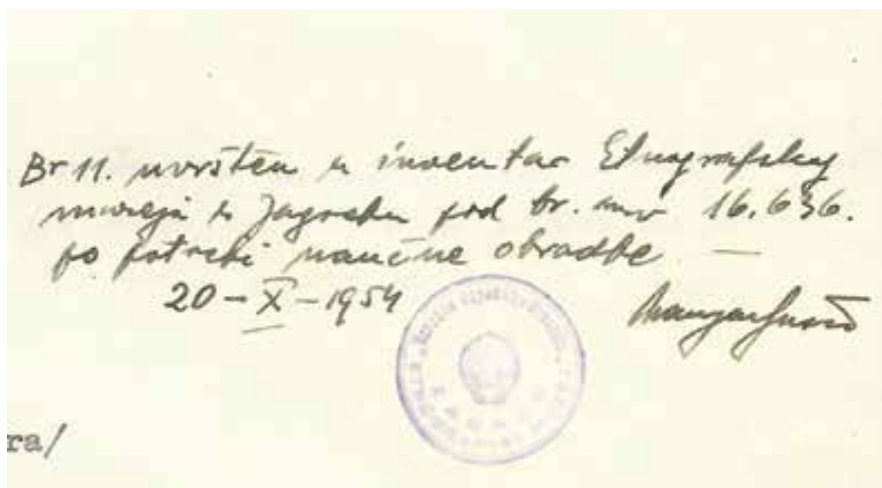 Br 11. uvršten u inventar Etnografskog
muzeja u Zagrebu pod br. inv 16.636.
po potrebi naučne obradbe —
20-X-1954
ZAGREB
ra/